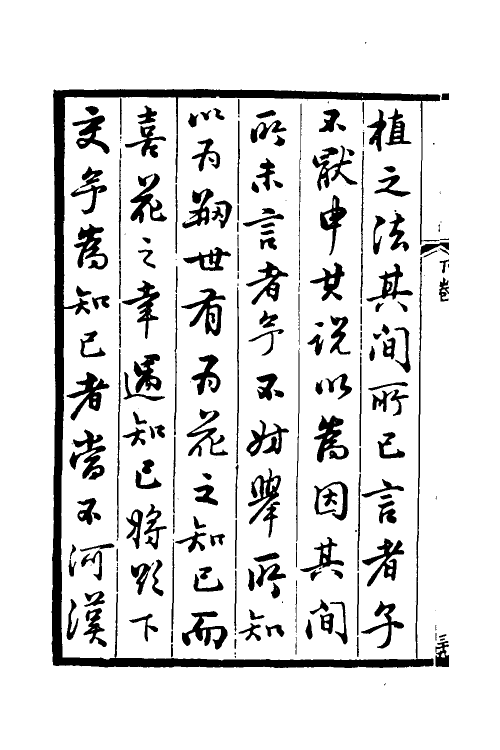 植之法其间所已言者予
不厭申其说以因其间
所未言者予不妨舉所知
以为世有为花之知己而
喜花之幸遇知己將下
交予知己者當不河漢
下卷